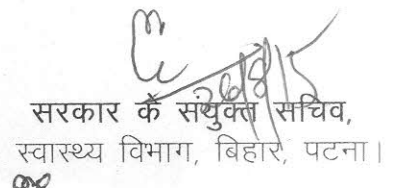 सरकार के संयुक्त सचिव,
स्वास्थ्य विभाग, बिहार, पटना।